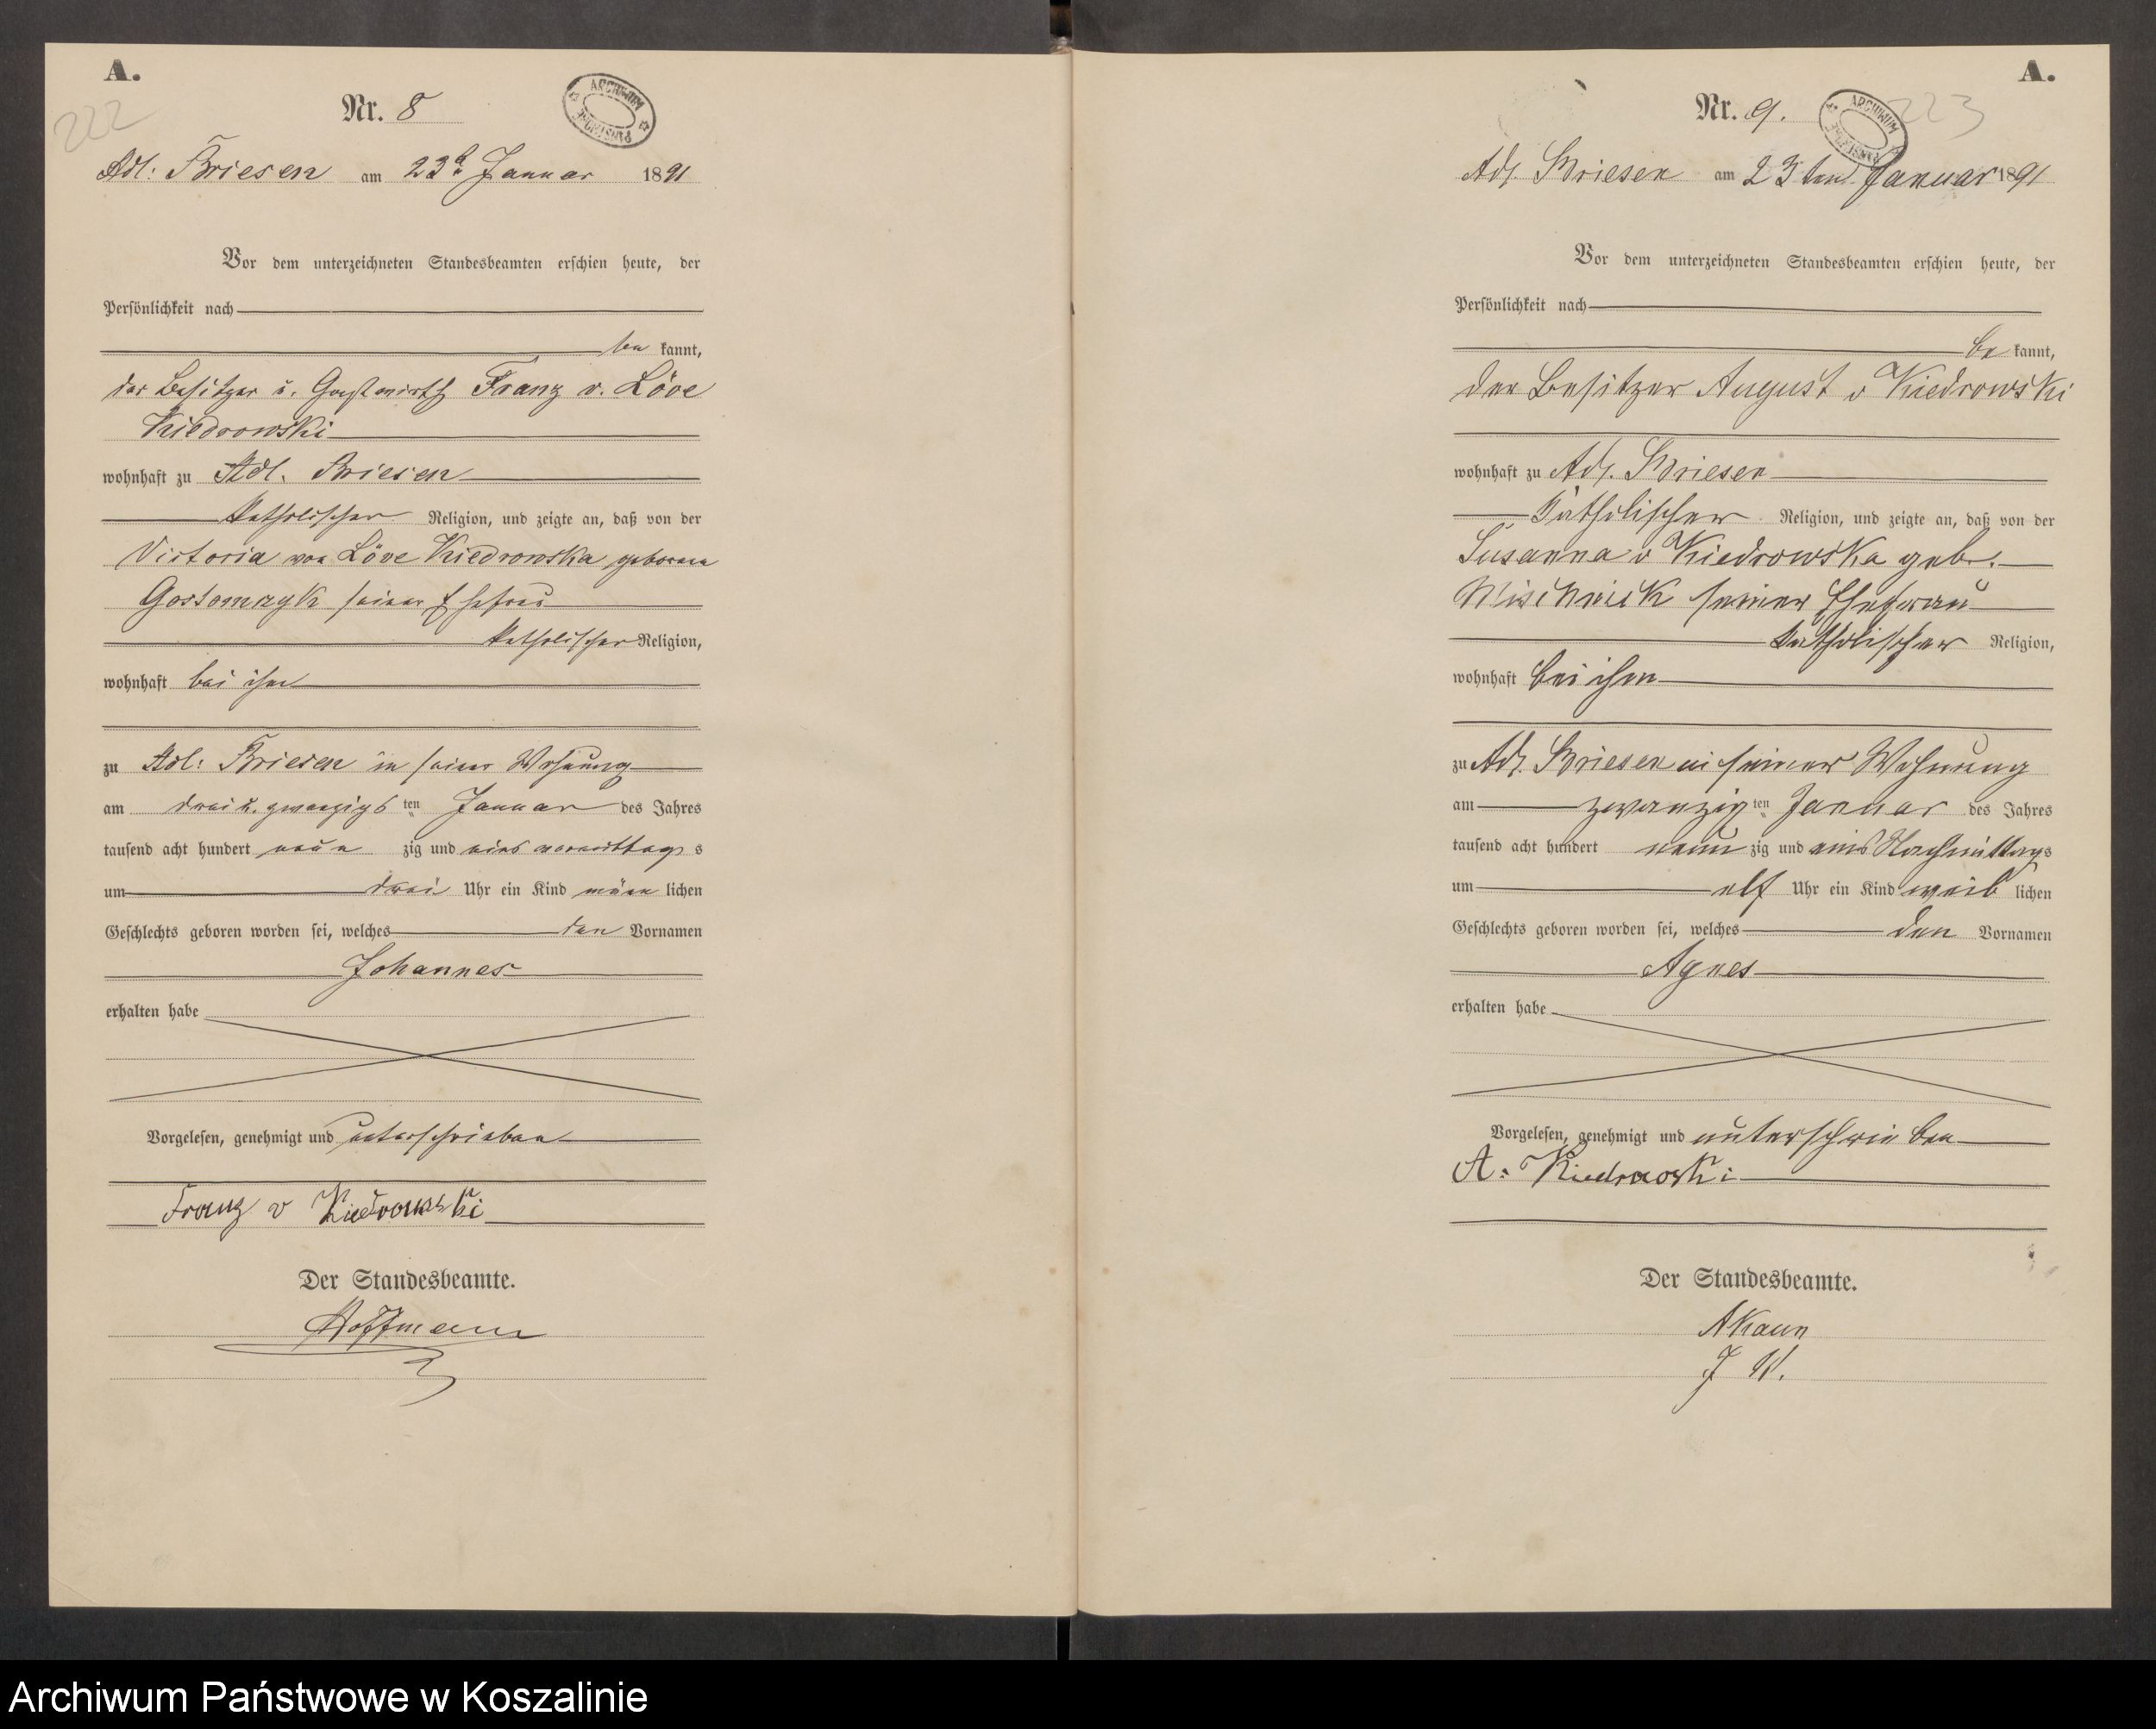 A.
222
Nr. 8
ARCHIWUM PAŃSTWOWE
Adl: Briesen am 23t Januar 1891
Vor dem unterzeichneten Standesbeamten erschien heute, der
Persönlichkeit nach
be kannt,
der Besitzer u. Gastwirth Franz v. Löve
Kiedrowski
wohnhaft zu Adl. Briesen
katholischer Religion, und zeigte an, daß von der
Victoria von Löve Kiedrowska geborene
Gostomzyk seiner Ehefrau
katholischer Religion,
wohnhaft bei ihm
zu Adl: Briesen in seiner Wohnung
am drei u. zwanzigs ten Januar des Jahres
tausend acht hundert neun zig und eins vormittags
um drei Uhr ein Kind männ lichen
Geschlechts geboren worden sei, welches den Vornamen
Johannes
erhalten habe
Vorgelesen, genehmigt und unterschrieben
Franz v Kiedrowski
Der Standesbeamte.
Hoffmann
A.
223
Nr. 9.
ARCHIWUM PAŃSTWOWE
Adl. Briesen am 23 ten Januar 1891
Vor dem unterzeichneten Standesbeamten erschien heute, der
Persönlichkeit nach
be kannt,
der Besitzer August v Kiedrowski
wohnhaft zu Adl. Briesen
Katholischer Religion, und zeigte an, daß von der
Susanna v Kiedrowska geb.
seiner Ehefrau
katholischer Religion,
wohnhaft bei ihm
zu Adl. Briesen in seiner Wohnung
am zwanzig ten Januar des Jahres
tausend acht hundert neun zig und eins Nachmittags
um elf Uhr ein Kind weib lichen
Geschlechts geboren worden sei, welches den Vornamen
Agnes
erhalten habe
Vorgelesen, genehmigt und unterschrieben
A: Kiedrowski
Der Standesbeamte.
AKaun
J V.
Archiwum Państwowe w Koszalinie